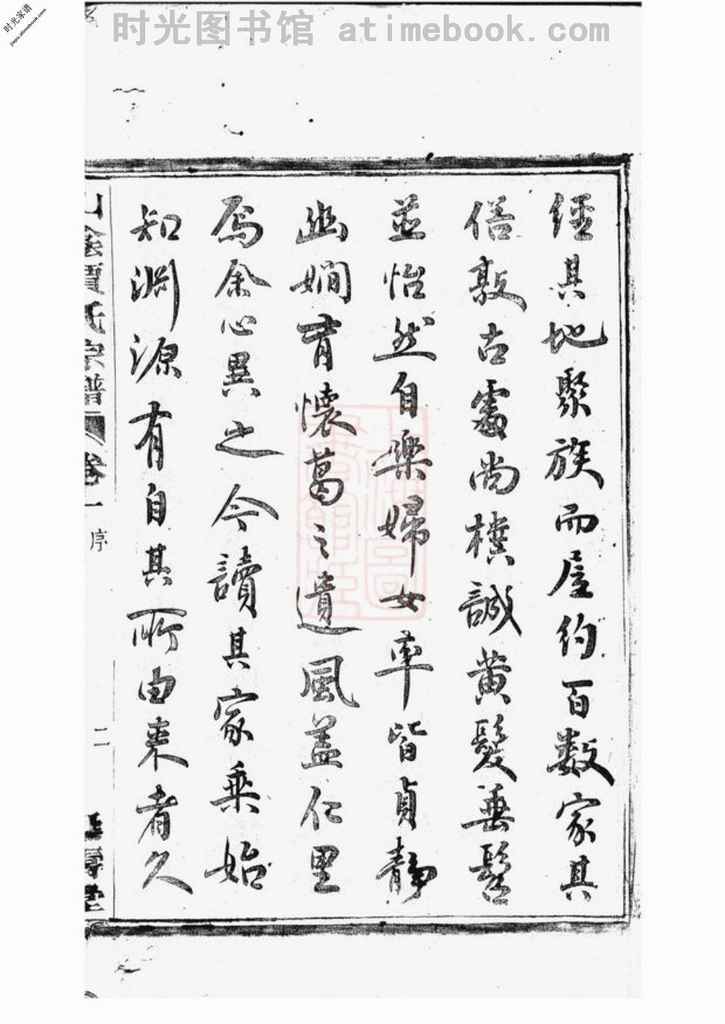 时光图书馆 atimebook.com
时光家谱
經其地聚族而居約百數家其
俗敦古處尚樸誠黄髮垂髫
並怡然自樂婦女率皆貞靜
幽嫻有懷葛之遺風蓋仁里
焉余心異之今讀其家乘始
知淵源有自其所由来者久
山陰賈氏宗譜 卷一 序 二